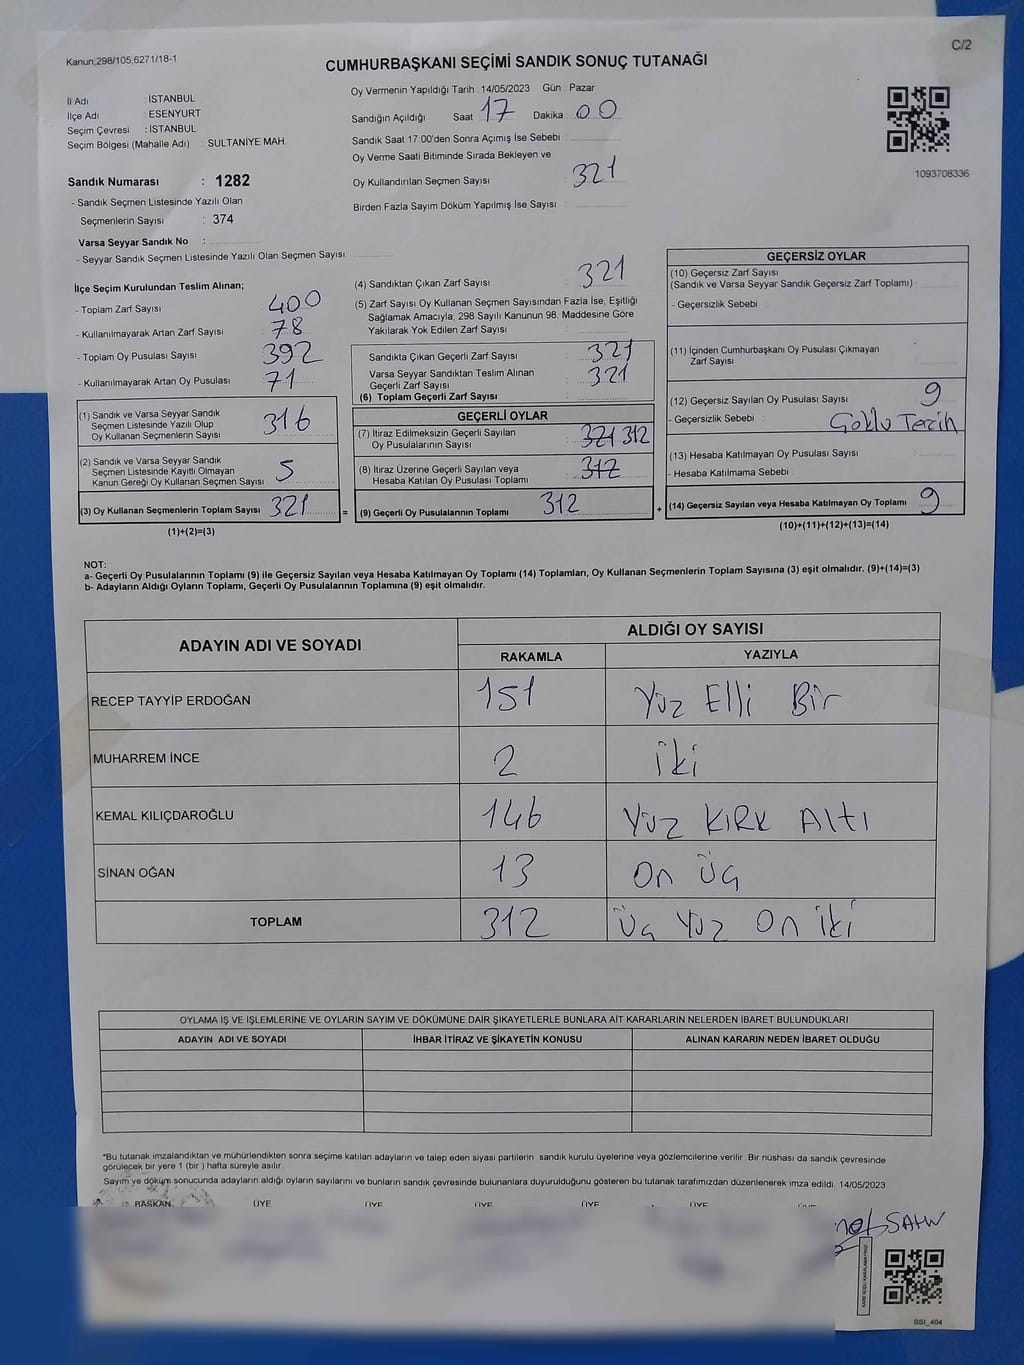 C/2
Kanun;298/105;6271/18-1
CUMHURBAŞKANI SEÇİMİ SANDIK SONUÇ TUTANAĞI
İl Adı : İSTANBUL
İlçe Adı : ESENYURT
Seçim Çevresi : İSTANBUL
Seçim Bölgesi (Mahalle Adı) SULTANİYE MAH.
Sandık Numarası : 1282
- Sandık Seçmen Listesinde Yazılı Olan
Seçmenlerin Sayısı : 374
Varsa Seyyar Sandık No :
- Seyyar Sandık Seçmen Listesinde Yazılı Olan Seçmen Sayısı:
Oy Vermenin Yapıldığı Tarih :14/05/2023 Gün : Pazar
Sandığın Açıldığı Saat 17 Dakika 00
Sandık Saat 17:00'den Sonra Açımış İse Sebebi :
Oy Verme Saati Bitiminde Sırada Bekleyen ve
Oy Kullandırılan Seçmen Sayısı : 321
Birden Fazla Sayım Döküm Yapılmış İse Sayısı :
1093708336
İlçe Seçim Kurulundan Teslim Alınan;
- Toplam Zarf Sayısı : 400
- Kullanılmayarak Artan Zarf Sayısı : 78
- Toplam Oy Pusulası Sayısı : 392
- Kullanılmayarak Artan Oy Pusulası : 71
(1) Sandık ve Varsa Seyyar Sandık
Seçmen Listesinde Yazılı Olup
Oy Kullanan Seçmenlerin Sayısı : 316
(2) Sandık ve Varsa Seyyar Sandık
Seçmen Listesinde Kayıtlı Olmayan
Kanun Gereği Oy Kullanan Seçmen Sayısı : 5
(3) Oy Kullanan Seçmenlerin Toplam Sayısı : 321
(1)+(2)=(3)
(4) Sandıktan Çıkan Zarf Sayısı : 321
(5) Zarf Sayısı Oy Kullanan Seçmen Sayısından Fazla İse, Eşitliği
Sağlamak Amacıyla, 298 Sayılı Kanunun 98. Maddesine Göre
Yakılarak Yok Edilen Zarf Sayısı :
Sandıkta Çıkan Geçerli Zarf Sayısı : 321
Varsa Seyyar Sandıktan Teslim Alınan
Geçerli Zarf Sayısı : 321
(6) Toplam Geçerli Zarf Sayısı :
GEÇERLİ OYLAR
(7) İtiraz Edilmeksizin Geçerli Sayılan
Oy Pusulalarının Sayısı : 321 312
(8) İtiraz Üzerine Geçerli Sayılan veya
Hesaba Katılan Oy Pusulası Toplamı : 312
= (9) Geçerli Oy Pusulalarının Toplamı : 312 +
GEÇERSİZ OYLAR
(10) Geçersiz Zarf Sayısı
(Sandık ve Varsa Seyyar Sandık Geçersiz Zarf Toplamı) :
- Geçersizlik Sebebi :
(11) İçinden Cumhurbaşkanı Oy Pusulası Çıkmayan
Zarf Sayısı :
(12) Geçersiz Sayılan Oy Pusulası Sayısı : 9
- Geçersizlik Sebebi : Çoklu Tercih
(13) Hesaba Katılmayan Oy Pusulası Sayısı :
- Hesaba Katılmama Sebebi :
(14) Geçersiz Sayılan veya Hesaba Katılmayan Oy Toplamı : 9
(10)+(11)+(12)+(13)=(14)
NOT:
a- Geçerli Oy Pusulalarının Toplamı (9) ile Geçersiz Sayılan veya Hesaba Katılmayan Oy Toplamı (14) Toplamları, Oy Kullanan Seçmenlerin Toplam Sayısına (3) eşit olmalıdır. (9)+(14)=(3)
b- Adayların Aldığı Oyların Toplamı, Geçerli Oy Pusulalarının Toplamına (9) eşit olmalıdır.
ADAYIN ADI VE SOYADI ALDIĞI OY SAYISI
RAKAMLA YAZIYLA
RECEP TAYYİP ERDOĞAN 151 Yüz Elli Bir
MUHARREM İNCE 2 iki
KEMAL KILIÇDAROĞLU 146 Yüz KIRK Altı
SİNAN OĞAN 13 On Üç
TOPLAM 312 Üç Yüz On iki
OYLAMA İŞ VE İŞLEMLERİNE VE OYLARIN SAYIM VE DÖKÜMÜNE DAİR ŞİKAYETLERLE BUNLARA AİT KARARLARIN NELERDEN İBARET BULUNDUKLARI
ADAYIN ADI VE SOYADI İHBAR İTİRAZ VE ŞİKAYETİN KONUSU ALINAN KARARIN NEDEN İBARET OLDUĞU
*Bu tutanak imzalandıktan ve mühürlendikten sonra seçime katılan adayların ve talep eden siyasi partilerin sandık kurulu üyelerine veya gözlemcilerine verilir. Bir nüshası da sandık çevresinde
görülecek bir yere 1 (bir ) hafta süreyle asılır.
Sayım ve döküm sonucunda adayların aldığı oyların sayılarını ve bunların sandık çevresinde bulunanlara duyurulduğunu gösteren bu tutanak tarafımızdan düzenlenerek imza edildi. 14/05/2023
BAŞKAN ÜYE ÜYE ÜYE ÜYE ÜYE ÜYE
BSI_404